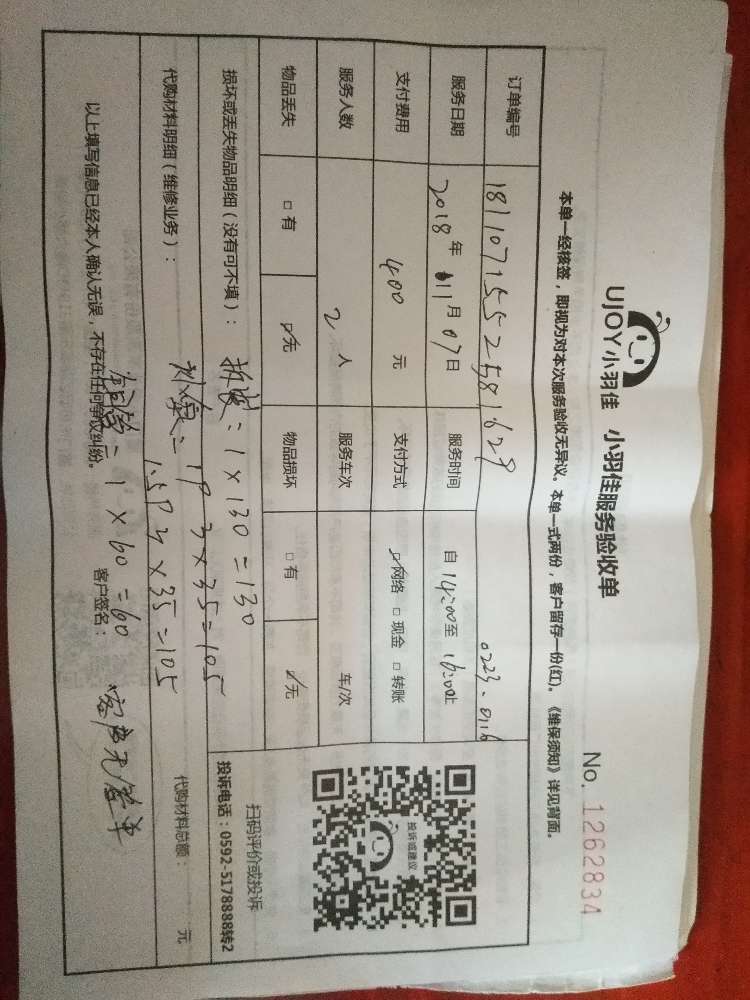 UJOY小羽佳 小羽佳服务验收单
No. 1262834
本单一经核签，即视为对本次服务验收无异议。本单一式两份，客户留存一份(红)。《维保须知》详见背面。
订单编号 1811071552581628
0223.0116
服务日期 2018年11月07日 服务时间 自14:00至16:00止
支付费用 400元 支付方式 ☑网络 □现金 □转账
服务人数 2人 服务车次 车/次
物品丢失 □有 ☑无 物品损坏 □有 ☑无
损坏或丢失物品明细（没有可不填）：
拆装：1×130=130
代购材料明细（维修业务）：
1P 3×35=105
1.5P 3×35=105
1×60=60
代购材料总额： 元
以上填写信息已经本人确认无误，不存在任何争议纠纷。
客户签名： 客户免签单
投诉或建议
扫码评价或投诉
投诉电话：0592-5178888转2